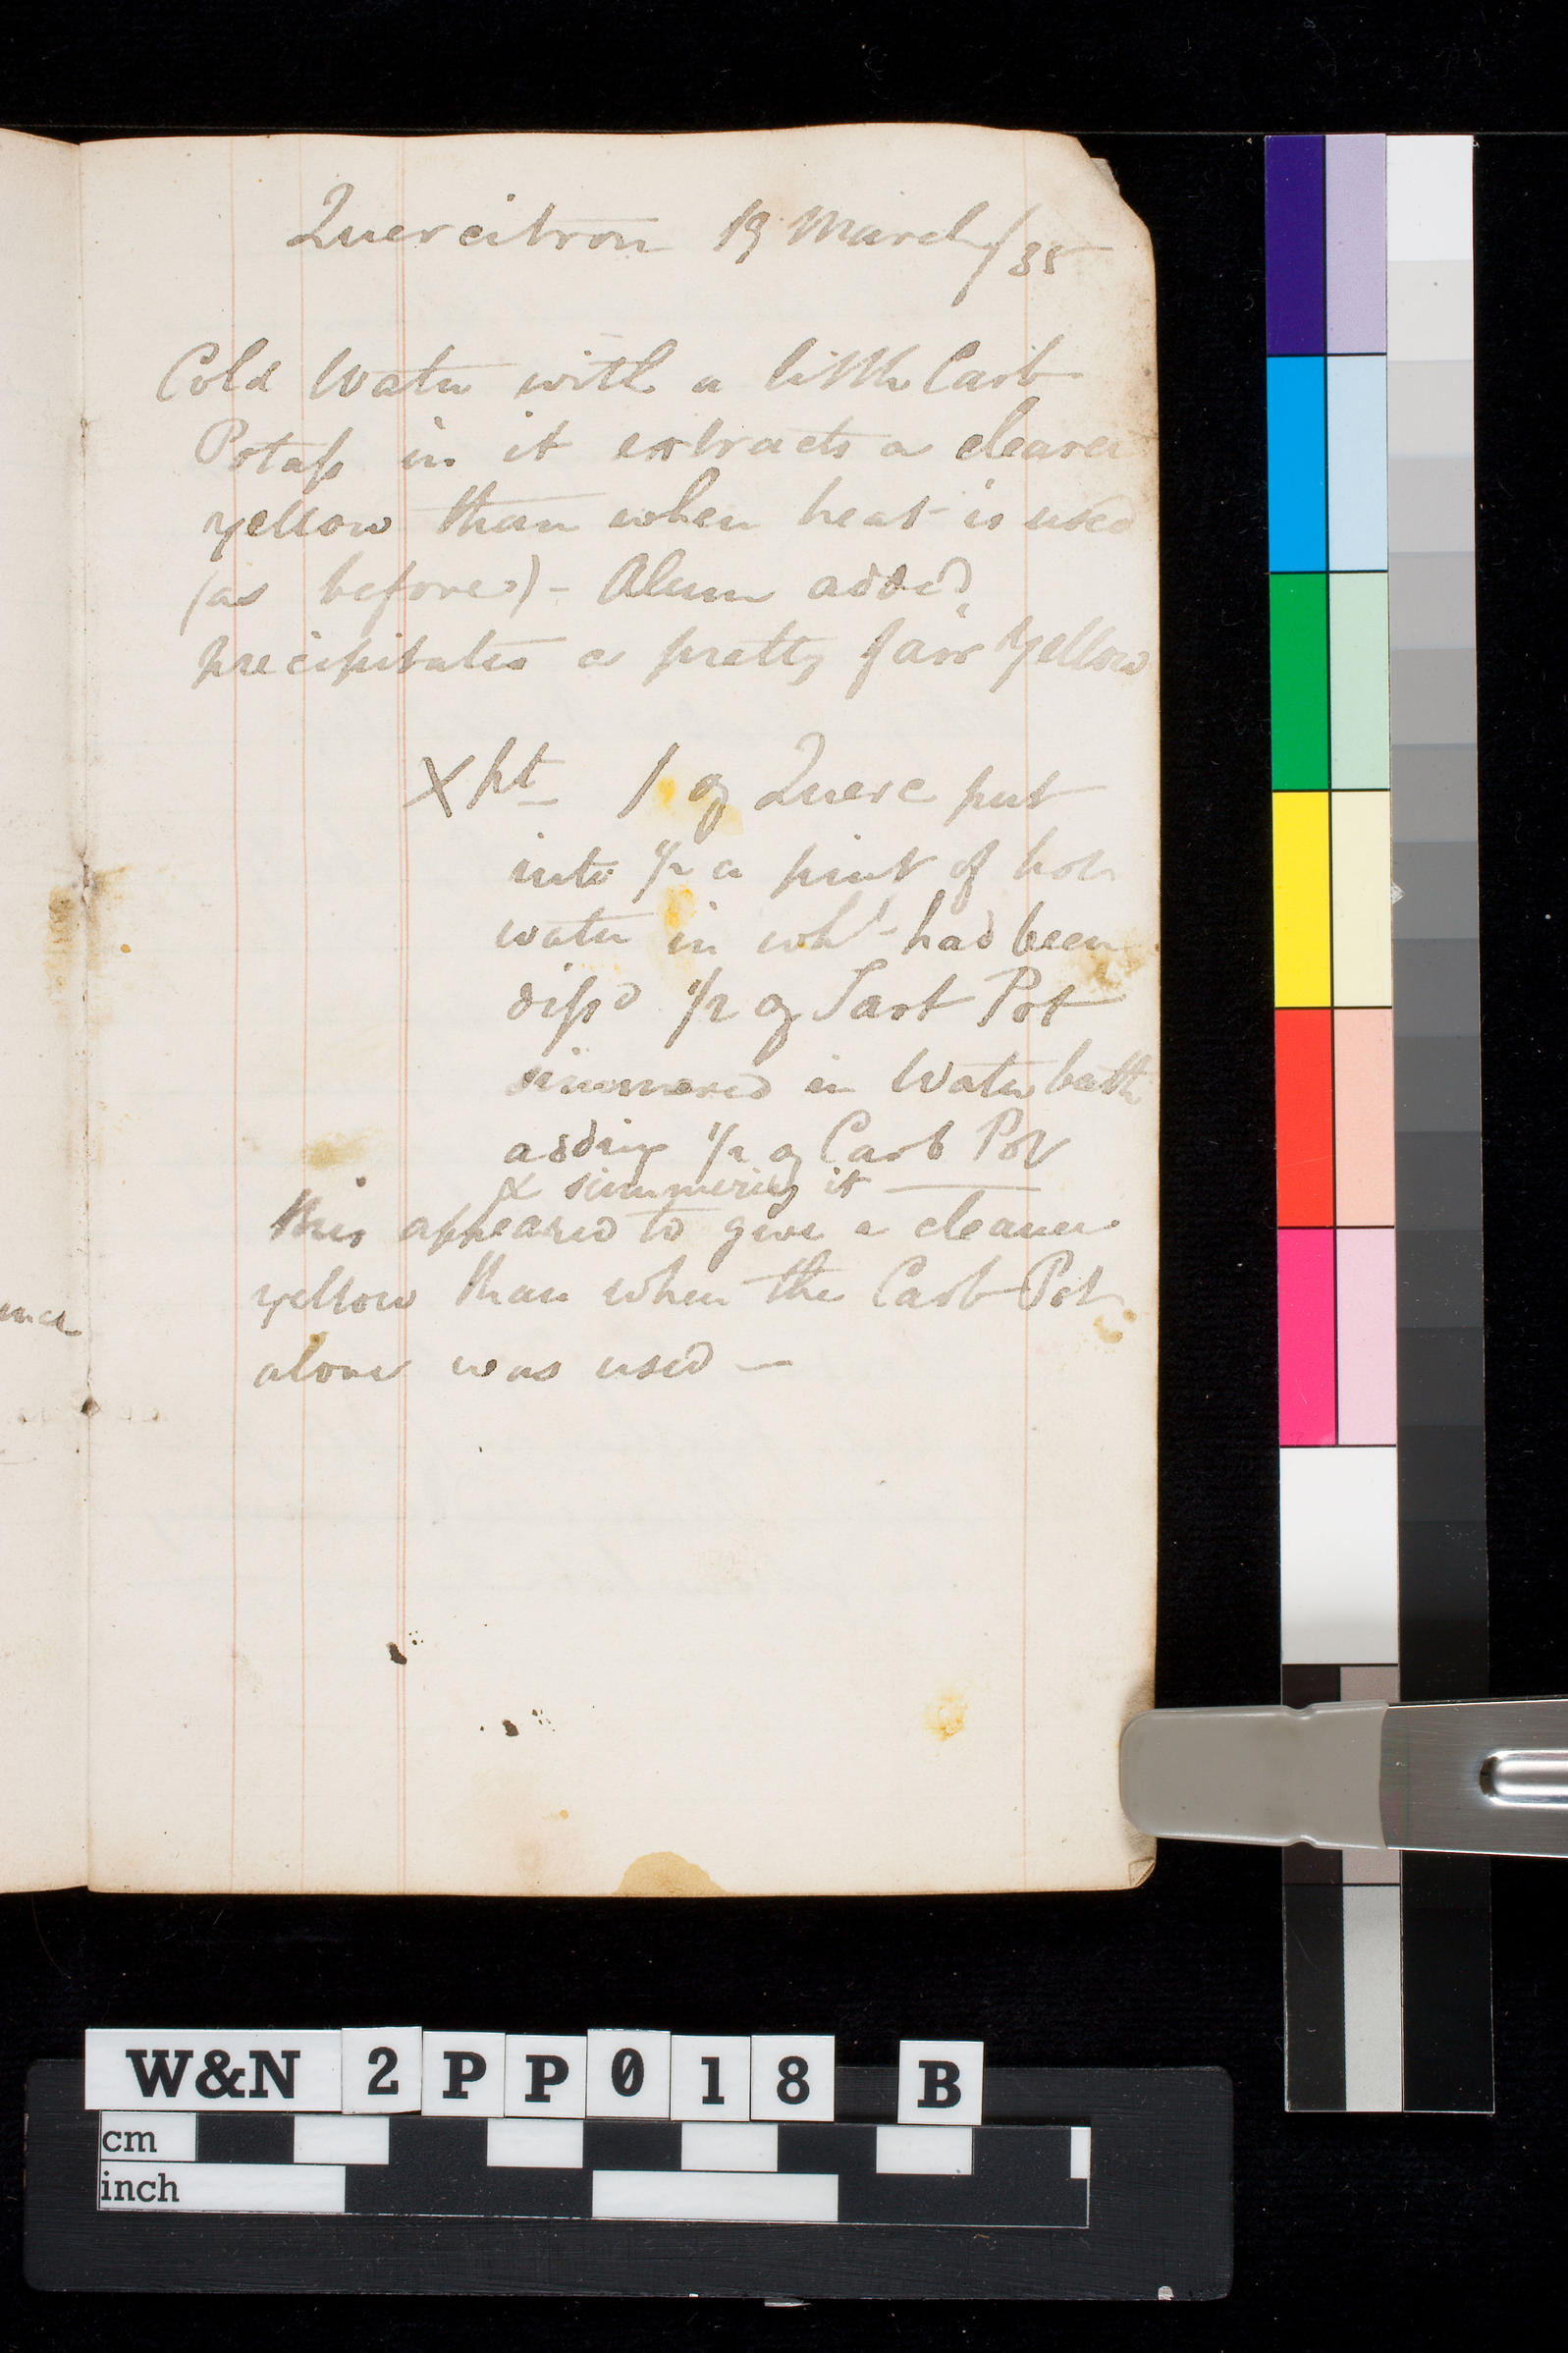 Quercitron 19 March/35
Cold Water with a little Carb
Potass in it extracts a clearer
yellow than when heat is used
(as before) - Alum added
precipitates a pretty fair Yellow
Xpt 1 oz Querc put
into 1/2 a pint of hot
water in wh had been
dissd 1/2 oz Tart Pot
simmered in Water bath
adding 1/2 oz Carb Pot
& simmering it —
this appeared to give a cleaner
yellow than when the Carb Pot
alone was used —
W&N 2PP018 B
cm
inch